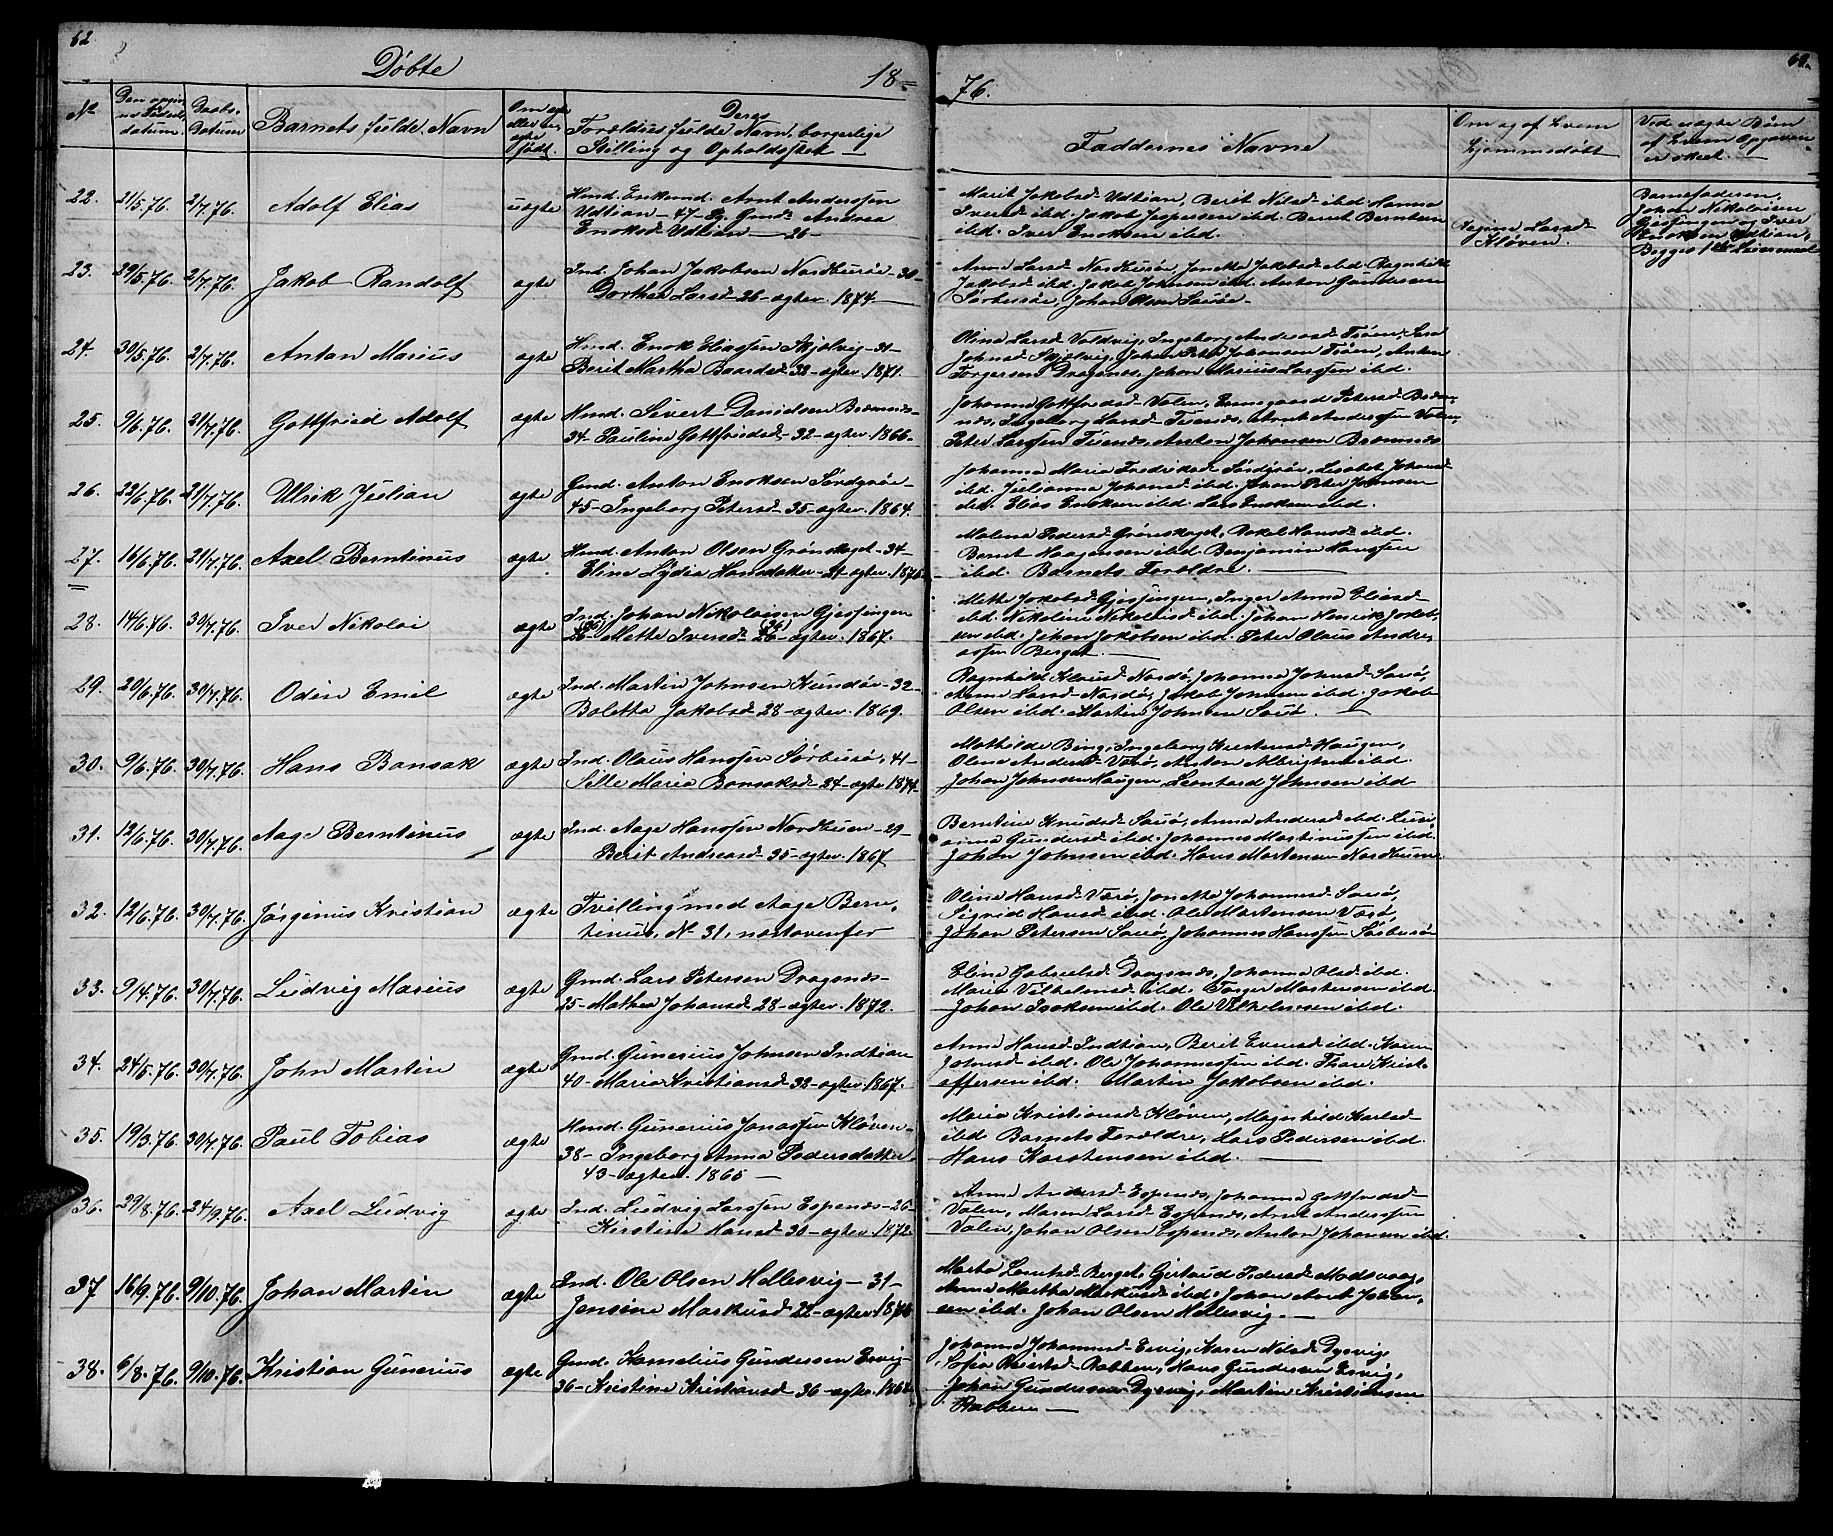 62
Døbte
18
76.
62.
No
Den opgivne Fødselsdatum
Daabs-Datum
Barnets fulde Navn
Om ægte eller uægte født.
Deres Forældres fulde Navn, borgerlige Stilling og Opholdssted
Faddernes Navne
Om og af hvem hjemmedøbt
Ved uægte Børn af hvem Opgaven er skeet.
22. 21/5.76. 2/7.76. Adolf Elias uægte
Hmd. Enkemd. Arnt Anderssen
Udtian - 47 - Gmd. Andrea
Enoksd. Udtian - 26 -
Marit Jakobsd. Udtian, Berit Nilsd. ibd. Hanna
Iversd. ibd. Jakob Jespersen ibd. Bernt Berntsen
ibd. Iver Enoksen ibd.
Regine Larsd.
Kløven.
Barnefaderen,
Johan Nikolaisen
Gjessingen og Iver
Enoksen Udtian,
Begges 1ste Leiermaal
23. 29/5.76. 2/7.76. Jakob Randolf ægte
Ind. Johan Jakobsen Nordbuøi - 30 -
Dorthea Larsd. 26 - ægtev. 1874.
Anne Larsd. Nordbuøi, Jonetta Jakobsd. ibd. Ragnhild
Jakobsd. ibd. Jakob Johnsen ibd. Anton Gundersen
Sørbuøi, Johan Olsen Sauøi.
24. 30/5.76. 2/7.76. Anton Marius ægte
Hmd. Enok Eliassen Skjølvig - 31 -
Berit Martha Baardsd. 32 - ægtev. 1871.
Olina Larsd. Valdvig, Ingeborg Andreasd. Trøen,
Johnsd. Skjølvig, Johan Peter Johansen Trøen, Anton
Torgersen Dragsnes, Johan Marius Larssen ibd.
25. 9/6.76. 21/7.76. Gottfried Adolf ægte
Hmd. Sivert Danielsen Bremnes -
34 - Pauline Gottfriedsd. 32 - ægtev. 1866.
Johanna Gottfredsd. Valen, Petersd. Brem-
nes, Ingeborg Larsd. Tienes, Arnt Anderssen Valen,
Peter Larssen Tienes, Anton Johansen Bremnes
26. 22/6.76. 21/7.76. Ulrik Julian ægte
Gmd. Anton Enoksen Sørdyrøi -
45 - Ingeborg Petersd. 35 - ægtev. 1864.
Johanna Maria Fredriksd. Sørdyrøi, Lisabet Johansd.
ibd. Julianna Johansd. ibd. Johan Peter Johnsen
ibd. Elias Enoksen ibd. Lars Enoksen ibd.
27. 16/6.76. 21/7.76. Axel Berntinus ægte
Hmd. Anton Olsen Grønskaget - 34 -
Eline Lydia Hansdatter - 21 - ægtev. 1876
Malena Pedersd. Grønskaget, Hansd. ibd.
Bernt Haagensen ibd. Benjamin Hanssen
ibd. Barnets Forældre.
28. 14/6.76. 30/7.76. Iver Nikolai ægte
Ind. Johan Nikolaisen Gjessingen
Mette Iversd. ægtev. 1867.
Mette Jakobsd. Gjessingen, Inger Anna Eliasd.
ibd. Nikoline Nikolaisd. ibd. Johan Henrik Jakob-
sen ibd. Johan Jakobsen ibd. Peter Olaus Andre-
assen Berget.
29. 20/6.76. 30/7.76. Odin Emil ægte
Ind. Martin Johnsen Kunøi - 32 -
Boletta Jakobsd. 28 - ægtev. 1869.
Ragnhild Nordø, Johanna Johnsd. Sauø,
Anna Larsd. Nordø, Jakob Johnsen ibd. Jakob
Olsen ibd. Martin Johnsen Sauø.
30. 9/6.76. 30/7.76. Hans Bonsak ægte
Ind. Olaus Hanssen Sørbuøi, 41 -
Sille Maria Bonsaksd. 24 - ægtev. 1874
Mathilde Bing, Ingeborg Haugen,
Olina Andersd. Værø, Anton Albrigtsen ibd.
Johan Johnsen Haugen, Leonhard Johnsen ibd
31. 12/6.76. 30/7.76. Aage Berntinus ægte
Ind. Aage Hanssen Nordbuen - 29 -
Berit Andreasd. 35 - ægtev. 1867
Berntine Knudsd. Sauø, Anna Andersd. ibd.
Gundersd. ibd. Johannes Martinussen ibd.
Johan Johnsen ibd. Hans Mortensen Nordbuen
32. 12/6.76. 30/7.76. Jørginus Kristian ægte
Tvilling med Aage Bern-
tenius, No 31, næstovenfor
Oline Hansd. Værø, Jonetta Johannesd. Sauø,
Sigrid Hansd. ibd. Ole Mortensen Værø,
Johan Petersen Sauø, Johannes Hanssen Sørbuøi
33. 9/4.76. 30/7.76. Ludvig Marius ægte
Gmd. Lars Petersen Dragsnes -
25 - Mathea Johansd. 28 - ægtev. 1872.
Eline Gabrielsd. Dragsnes, Johanna Olsd. ibd.
Maria Vilhelmsd. ibd. Torger Mortensen ibd.
Johan Isaksen ibd. Ole Vilhelmsen ibd.
34. 24/5.76. 30/7.76. John Martin ægte
Gmd. Gunerius Johnsen Indtian
40 - Maria Kristiansd. 32 - ægtev. 1867.
Anne Hansd. Indtian, Berit Evensd. ibd. Karen
Johnsd. ibd. Ole Johannessen ibd. Thore Krist-
offersen ibd. Martin Jakobsen ibd.
35. 19/3.76. 30/7.76. Paul Tobias ægte
Hmd. Gunerius Jonassen Kløven -
38 - Ingeborg Anna Pedersdatter
43 - ægtev. 1865 -
Maria Kristiansd. Kløven, Magnhild Karlsd.
ibd. Barnets Forældre, Lars Pedersen ibd.
Hans Karstensen ibd.
36. 29/8.76. 24/9.76. Axel Ludvig ægte
Ind. Ludvig Larssen Espenes - 26 -
Kristine Hansd. 30 - ægtev. 1872.
Anna Andersd. Espenes, Johanna Gottfredsd.
Valen, Maren Larsd. Espenes, Arnt Anderssen
Valen, Johan Olsen Espenes, Anton Johansen ibd.
37 16/9.76. 9/10.76. Johan Martin ægte
Ind. Ole Olsen Hellesvig - 31 -
Jensine Markusd. 22 - ægtev.
Marta Berget, Gjertrud Pedersd. Madsvaag,
Anne Martha Markusd. ibd. Johan Arnt Johan-
sen ibd. Johan Olsen Hellesvig.
38. 6/8.76. 9/10.76. Kristian Gunerius ægte
Gmd. Kornelius Gundersen Ervig -
36 - Kristine Kristiansd. 36 - ægtev.
Johanna Johannesd. Ervig, Karen Nilsd. Dysvig,
Sofia Rabben, Hans Gundersen Ervig,
Johan Gundersen Dysvig, Martin Kristiansen
Rabben